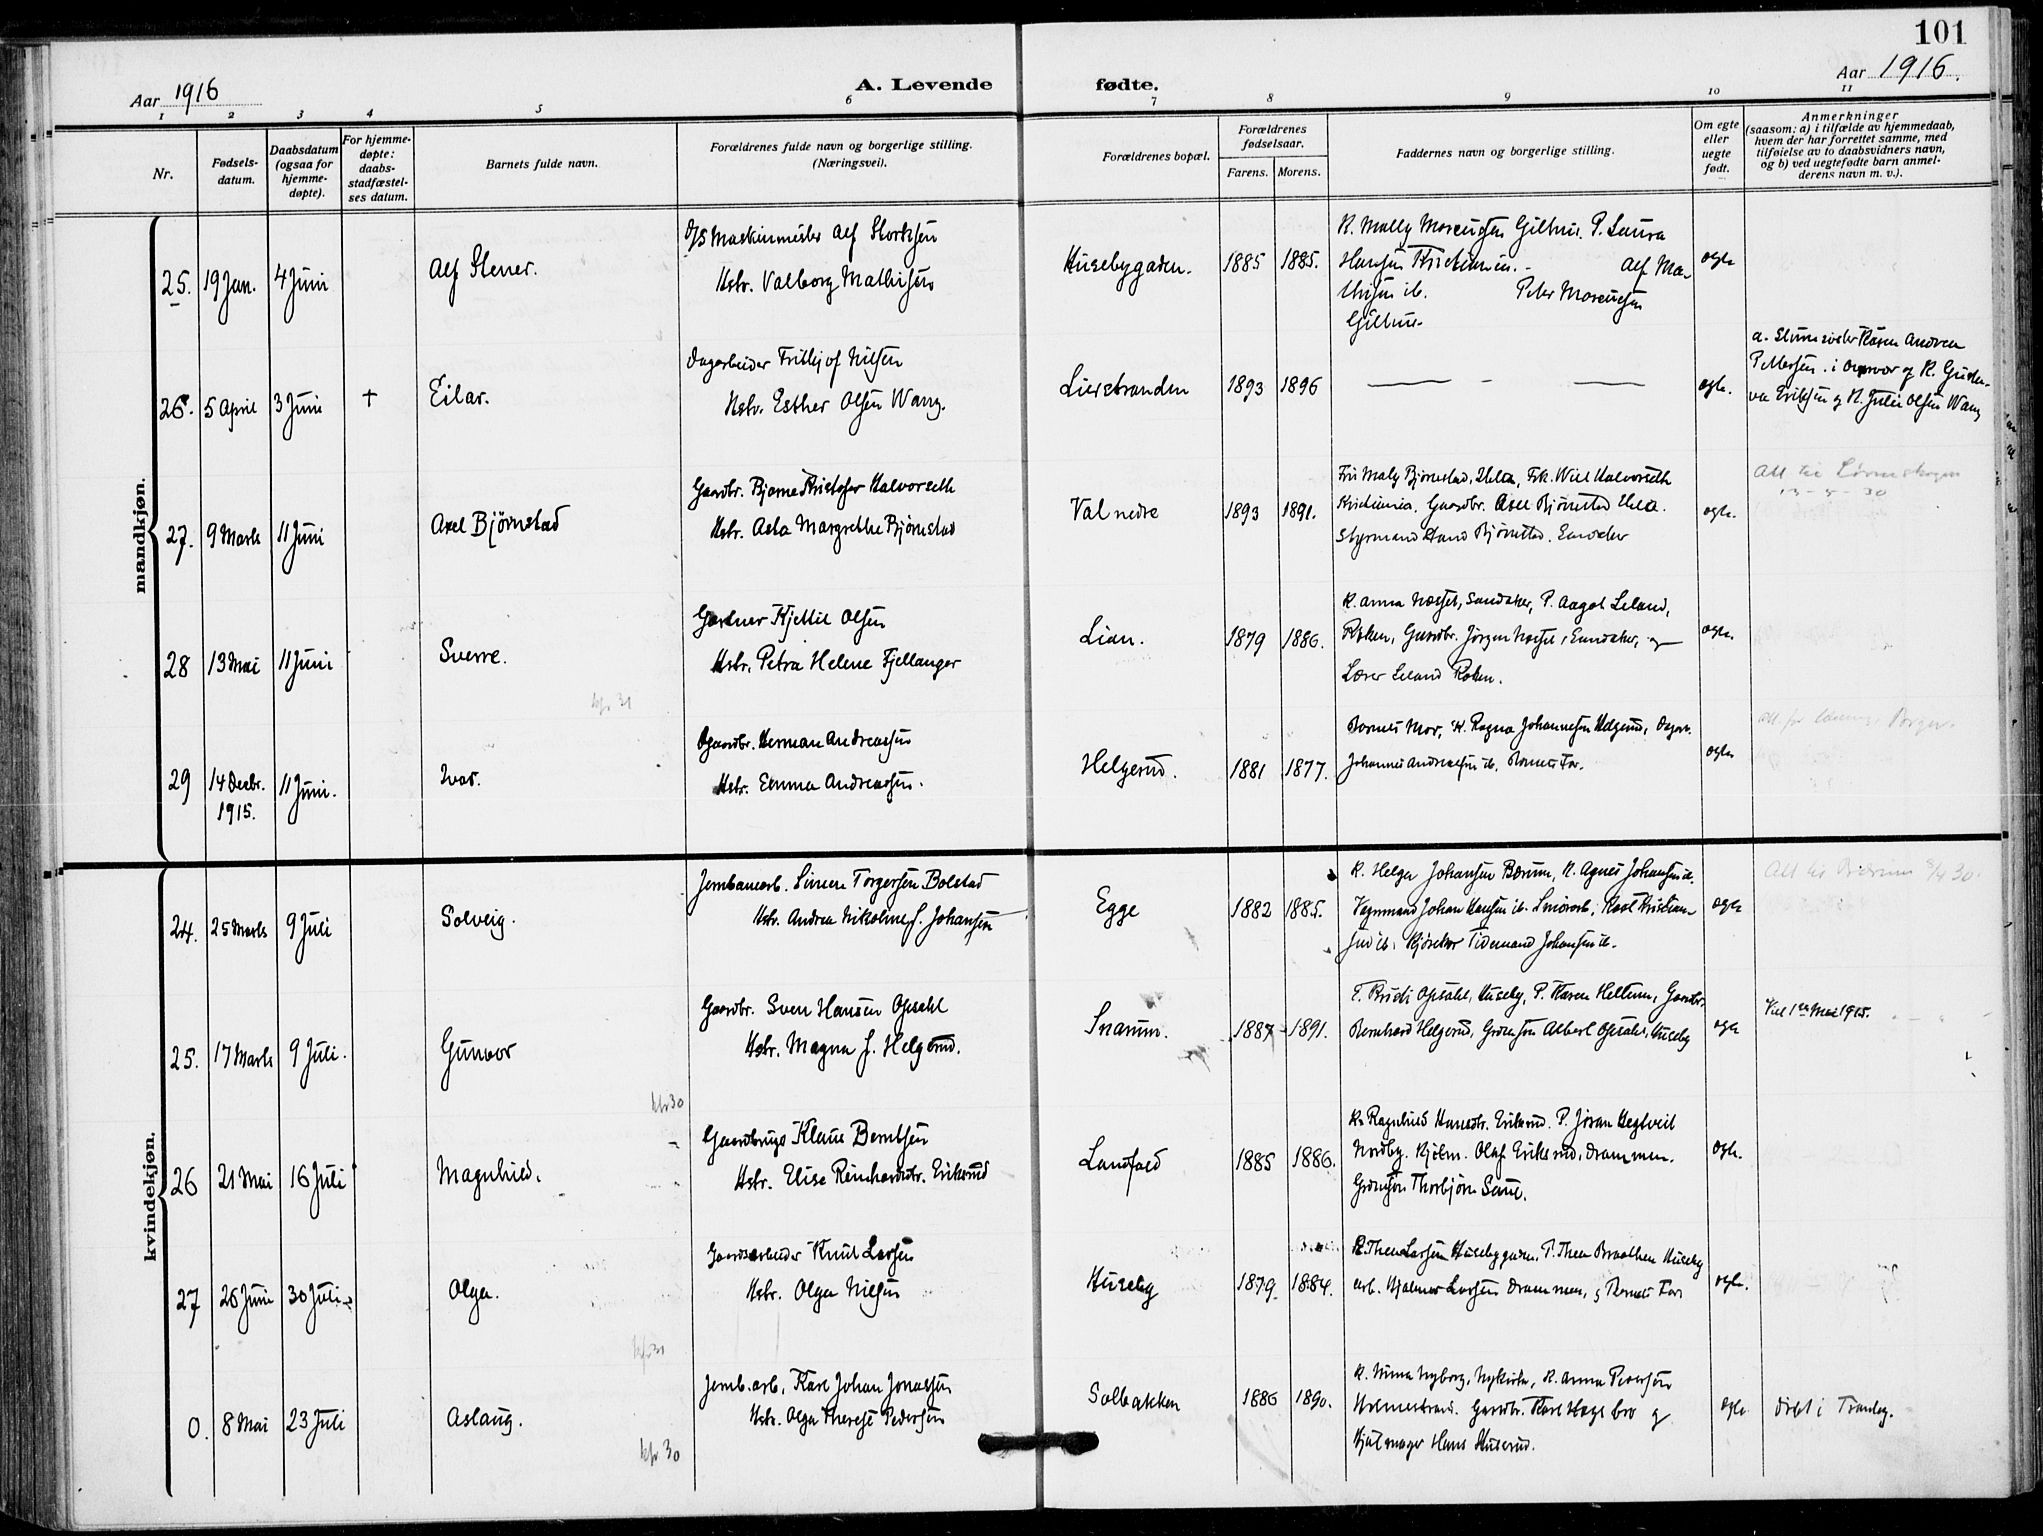 101
Aar 1916
A. Levende fødte.
Aar 1916.
1 2 3 4 5 6 7 8 9 10 11
Nr.
Fødsels-
datum.
Daabsdatum
(ogsaa for
hjemme-
døpte).
For hjemme-
døpte:
daabs-
stadfæstel-
ses datum.
Barnets fulde navn.
Forældrenes fulde navn og borgerlige stilling.
(Næringsvei).
Forældrenes bopæl.
Forældrenes
fødselsaar.
Farens. Morens.
Faddernes navn og borgerlige stilling.
Om egte
eller
uegte
født.
Anmerkninger
(saasom: a) i tilfælde av hjemmedaab,
hvem der har forrettet samme, med
tilføielse av to daabsvidners navn,
og b) ved uegtefødte barn anmel-
derens navn m. v.).
mandkjøn.
25. 19 Jan. 4 Juni
Alf Stener.
Maskinmester Alf Storksen
Hstr. Valborg Mathisen
Husebygaden.
1885 1885.
K. Mally Marcussen Gilhus. P. Laura
Hansen Kristiania. Alf Ma-
thisen ib. Peter Marcussen
Gilhus.
egte
26. 5 April 3 Juni +
Eilar.
Dagarbeider Frithjof Nilsen
Hstr. Esther Olsen Wang.
Lierstranden
1893 1896
egte.
Karen Andrea
Pettersen. i overvær af K.
Eriksen og K. Julie Olsen Wang
27. 9 Marts 11 Juni
Axel Bjørnstad
Gaardbr. Bjarne Kristofer Halvorseth
Hstr. Asta Margrethe Bjørnstad
Val nedre
1893 1891.
Fru Maly Bjørnstad, Frk. Halvorseth
Kristiania. Gaardbr. Axel Bjørnstad
Styrmand Hans Bjørnstad.
egte.
Att til Lørenskogen
13-5-30
28 13 Mai 11 Juni
Sverre.
kfr 31
Gartner Kjettil Olsen
Hstr. Petra Helene Fjellanger
Lian.
1879 1886.
K. Anna Næsset, Sandaker, P. Aagot Leland,
Røken, Gaardbr. Jørgen Næsset, Sandaker, og
Lærer Leland Røken.
egte.
29 14 Decbr.
1915. 11 Juni.
Ivar.
Gaardbr. Herman Andreassen
Hstr. Emma Andreassen.
Helgerud.
1881 1877.
Barnets Mor, K. Ragna Johannesen Helgerud,
Johannes Andreassen ib. Barnets Far.
egte
kvindekjøn.
24. 25 Marts 9 Juli
Solveig.
Jernbanearb. Simen Torgersen Bolstad
Hstr. Andrea Nikoline f. Johansen
Egge
1882 1885.
K. Helga Johansen Bærum, K. Agnes Johansen ib.
Vognmand Johan Hansen ib. Karl Kristian-
sen ib. Tidemand Johansen ib.
egte
Att til Bærum 8/4 30.
25. 17 Marts 9 Juli.
Gunvor
kfr 30
Gaardbr. Sven Hansen Opsahl
Hstr. Magna f. Helgerud.
Snarum.
1887 1891.
Opsahl, Huseby, P. Karen Heltun, Gaardbr.
Bernhard Helgerud, Albert Opsahl, Huseby
egte
26 21 Mai 16 Juli
Magnhild.
Gaardbruger Klaus Berntsen
Hstr. Elise Reinhardtdtr. Eriksrud
Landfald
1885 1886.
K. Ragnhild Hansdtr. Eriksrud. P. Jøran Hegtveit
Nordby. Olaf Eriksrud, Drammen.
Thorbjørn
egte.
27 26 Juni 30 Juli
Olga.
kfr 31
Gaardsarbeider Knut Larsen
Hstr. Olga Nilsen
Huseby
1879 1884.
K. Thea Larsen Husebygaden, P. Thea Braathen Huseby
arb. Hjalmar Larsen Drammen, og Barnets Far
egte.
0. 8 Mai 23 Juli
Aslaug.
kfr 30
Jernb. arb. Karl Johan Jonassen
Hstr. Olga Therese Pedersen
Solbakken
1886 1890.
K. Nina Nyborg, Nykirke, K. Anna Pedersen
Holmestrand. Gaardbr. Karl og
Hjulmager Hans Huserud.
egte
døbt i Tranby.